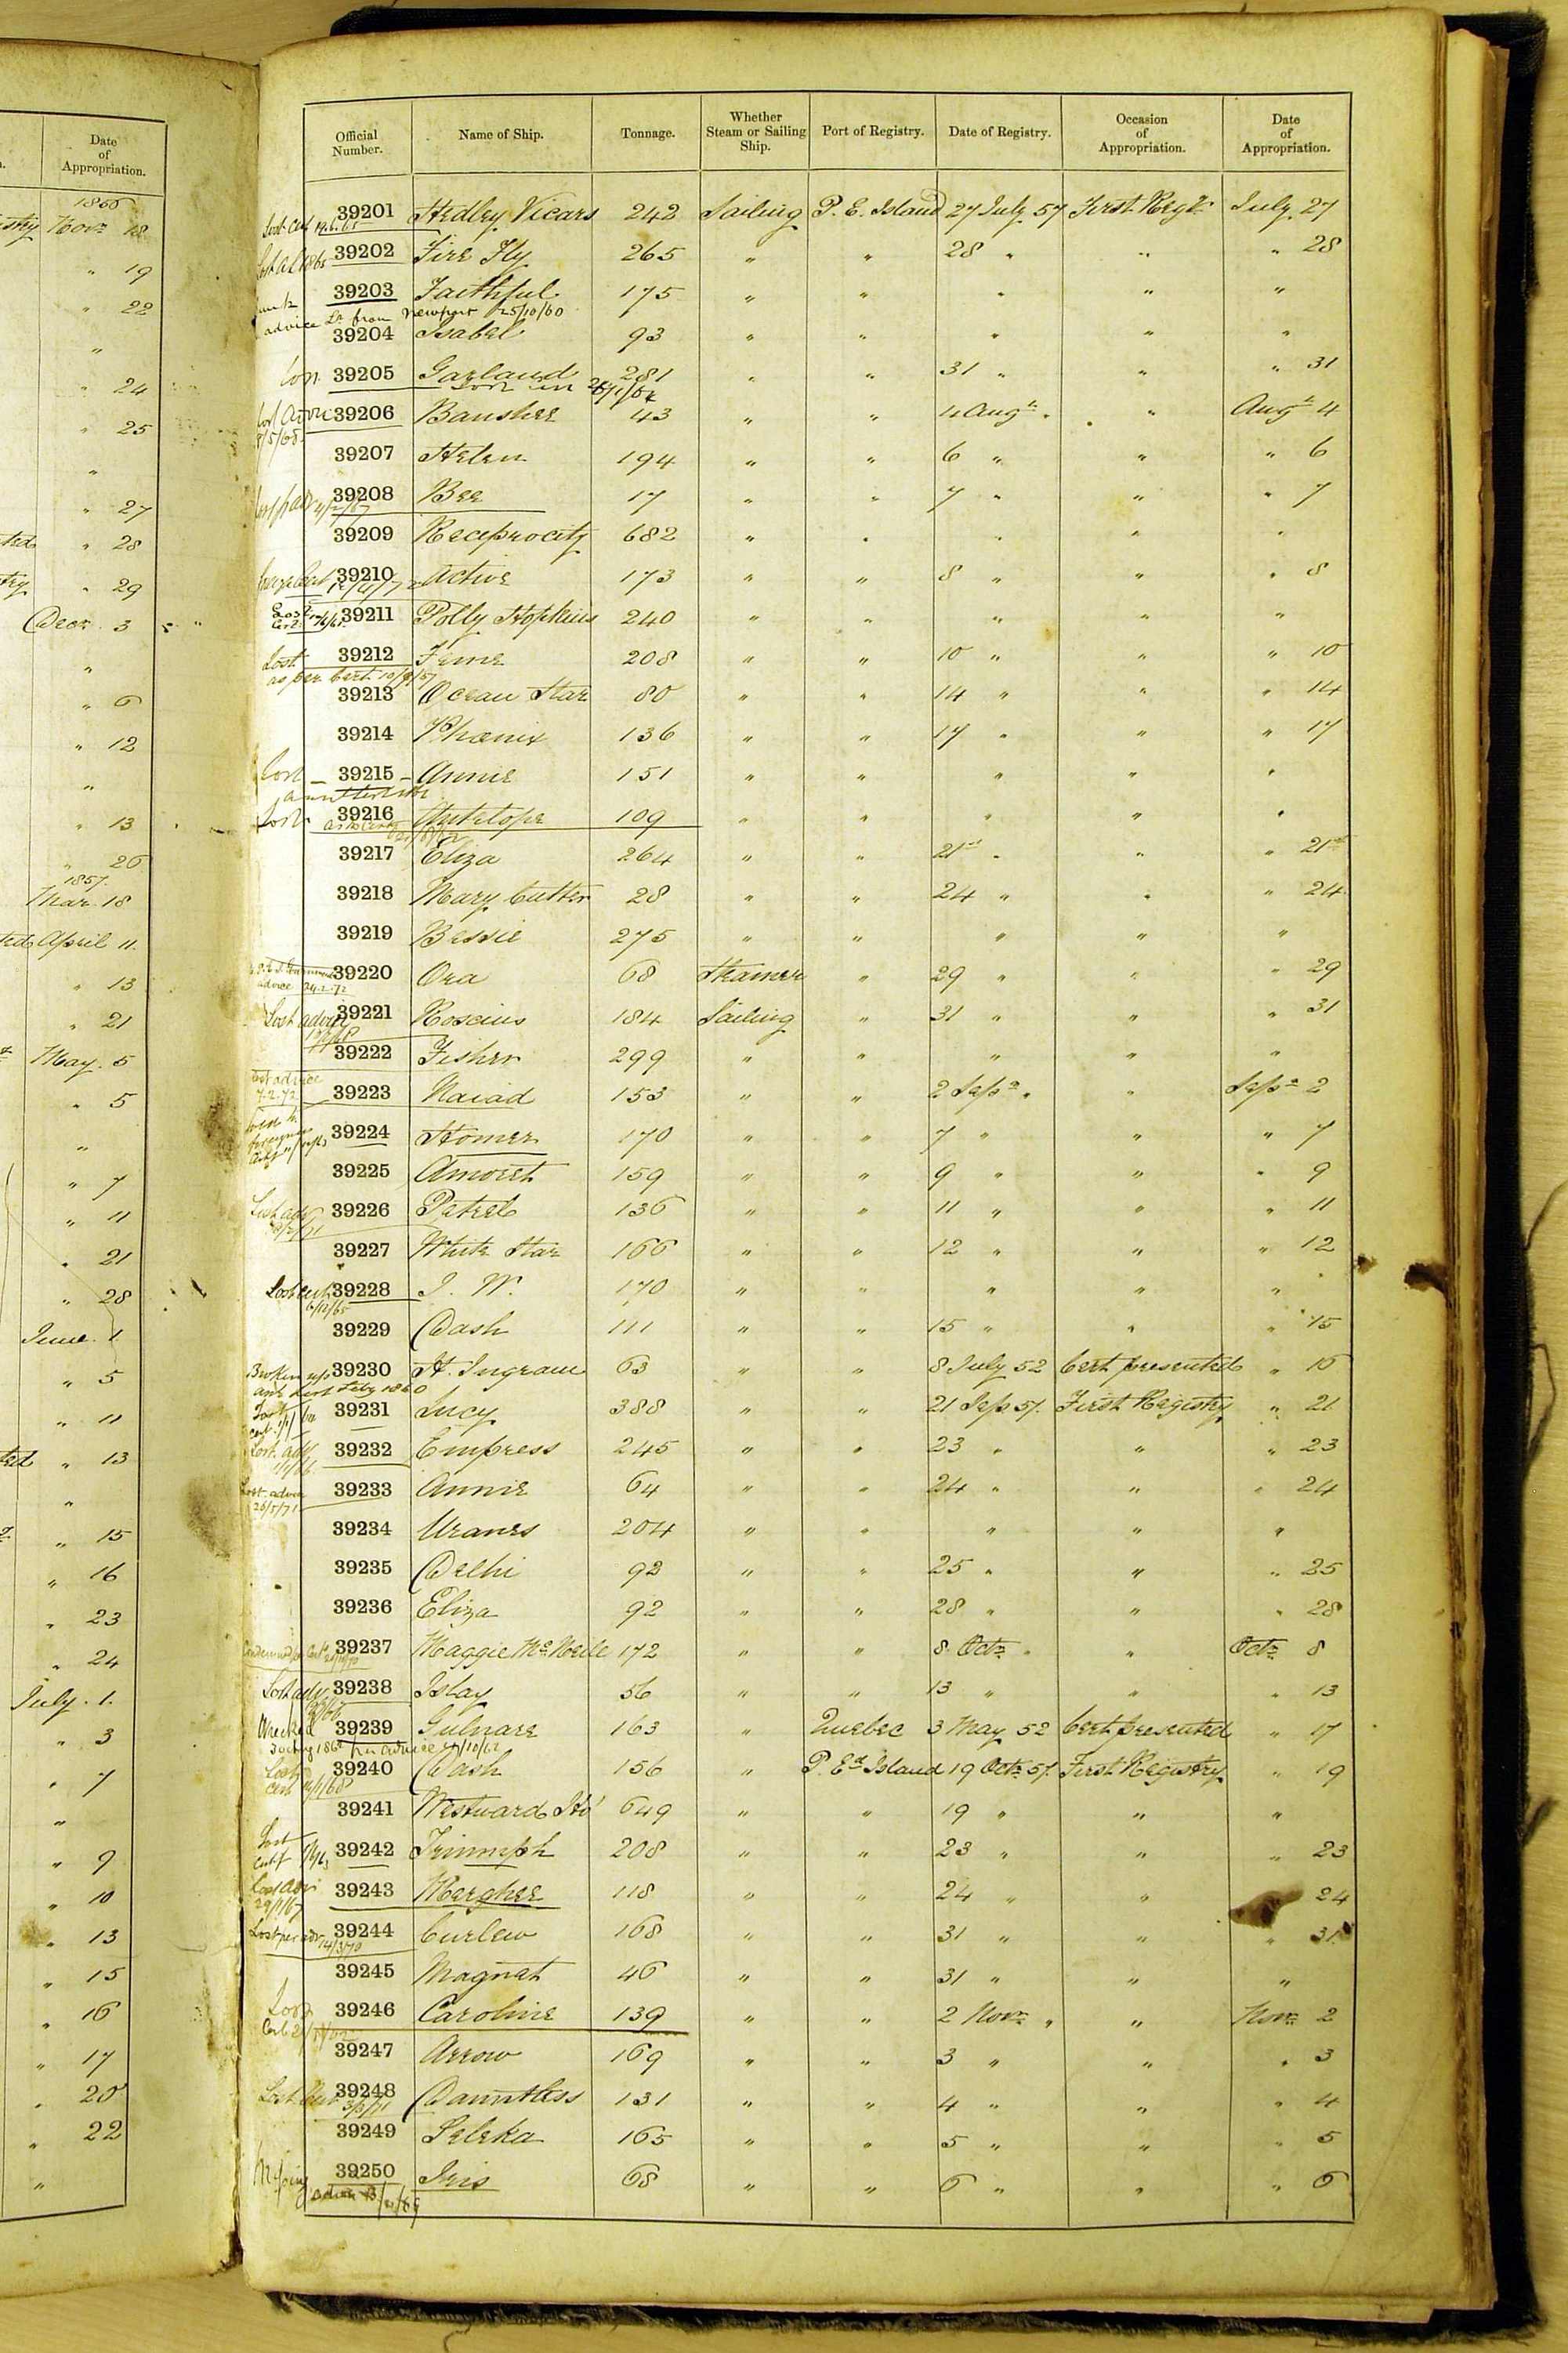 Date of Appropriation.
1856
Novr 18
" 19
" 22
"
" 24
" 25
"
" 27
" 28
" 29
Decr 3
"
" 6
" 12
"
" 13
" 26
1857.
Mar. 18
April 11.
" 13
" 21
May. 5
" 5
"
" 7
" 11
" 21
" 28
June. 1
" 5
" 11
" 13
"
" 15
" 16
" 23
" 24
July. 1.
" 3
" 7
"
" 9
" 10
" 13
" 15
" 16
" 17
" 20
" 22
"
Official Number. Name of Ship. Tonnage. Whether Steam or Sailing Ship. Port of Registry. Date of Registry. Occasion of Appropriation. Date of Appropriation.
39201 Hedley Vicars 242 Sailing P. E. Island 27 July 57 First Regy July 27
Lost Cert
39202 Fire Fly 265 " " 28 " " " 28
39203 Faithful 175 " " " " "
advice Lr from Newport 25/10/60
39204 Isabel 93 " " " " "
39205 Garland 281 " " 31 " " " 31
39206 Banshee 43 " " 4 Augt " " Augt 4
39207 Helen 194 " " 6 " " " 6
39208 Bee 17 " " 7 " " " 7
39209 Reciprocity 682 " " " " "
39210 Active 173 " " 8 " " " 8
39211 Polly Hopkins 240 " " " " "
39212 Feme 208 " " 10 " " " 10
Lost as per Cert.
39213 Ocean Star 80 " " 14 " " " 14
39214 Phœnix 136 " " 17 " " " 17
Lost – 39215 – Annie 151 " " " " "
Lost 39216 Antelope 109 " " " " "
39217 Eliza 264 " " 21st " " " 21st
39218 Mary Cutter 28 " " 24 " " " 24
39219 Bessie 275 " " " " "
39220 Ora 68 Steamer " 29 " " " 29
advice 24.2.72
39221 Roscius 184 Sailing " 31 " " " 31
Lost advice
39222 Fisher 299 " " " " "
39223 Naiad 153 " " 2 Sepr " " Sepr 2
Lost advice 7.2.72
39224 Homer 170 " " 7 " " " 7
39225 Amoret 159 " " 9 " " " 9
39226 Petrel 136 " " 11 " " " 11
39227 White Star 166 " " 12 " " " 12
39228 J. W. 170 " " " " "
Lost Cert 6/12/65
39229 Dash 111 " " 15 " " " 15
39230 St. Ingram 63 " " 8 July 52 Cert presented " 16
Broken up
39231 Lucy 388 " " 21 Sep 57. First Registry " 21
39232 Empress 245 " " 23 " " " 23
39233 Annie 64 " " 24 " " " 24
Lost advice 26/5/71
39234 Uranes 204 " " " " "
39235 Delhi 92 " " 25 " " " 25
39236 Eliza 92 " " 28 " " " 28
39237 Maggie McNeile 172 " " 8 Octr " " Octr 8
39238 Islay 56 " " 13 " " " 13
39239 Gulnare 163 " Quebec 3 May 52 Cert presented " 17
Wrecked per advice
39240 Dash 156 " P. Ed Island 19 Octr 57. First Registry " 19
39241 Westward Ho' 649 " " 19 " " "
39242 Triumph 208 " " 23 " " " 23
39243 Mergher 118 " " 24 " " " 24
39244 Curlew 168 " " 31 " " " 31
Lost per adv 14/3/70
39245 Magnet 46 " " 31 " " "
39246 Caroline 139 " " 2 Novr " " Novr 2
39247 Arrow 169 " " 3 " " " 3
39248 Dauntless 131 " " 4 " " " 4
39249 Selska 165 " " 5 " " " 5
39250 Iris 68 " " 6 " " " 6